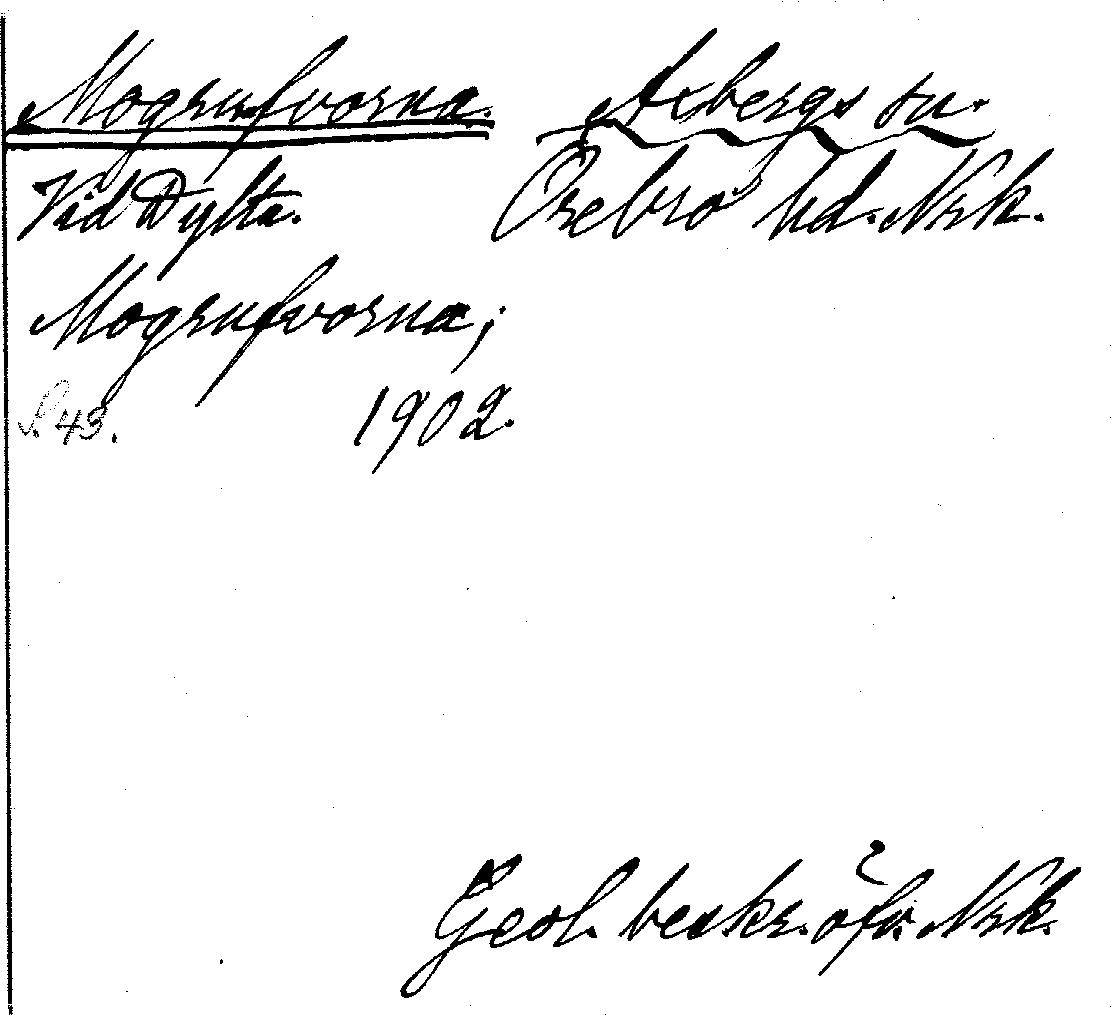 Mogrufvorna. Axbergs sn.
Vid Dylta. Örebro hd. Nrk.
Mogrufvorna;
S. 43. 1902.
Geol. beskr. öfv. Nrk.